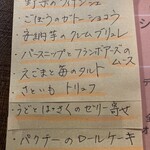 ・ごぼうのガトーショコラ
・安納芋のクレームブリュレ
・パースニップとフランボアーズの
ムース
・えごまと苺のタルト
・さといも トリュフ
・うどとはっさくのゼリー寄せ
・パクチーのロールケーキ